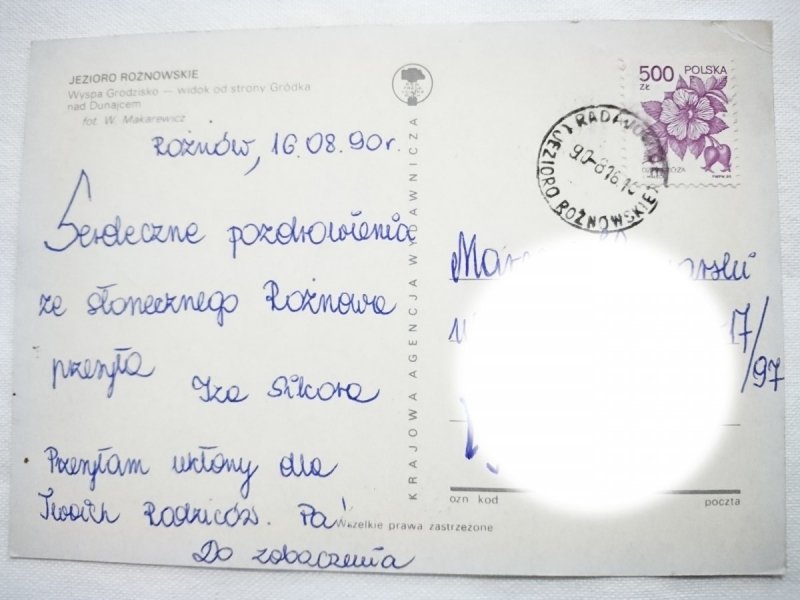 JEZIORO ROŻNOWSKIE
Wyspa Grodzisko — widok od strony Gródka
nad Dunajcem
fot. W. Makarewicz
Rożnów, 16.08.90r.
Serdeczne pozdrowienia
ze słonecznego Rożnowa
przesyła
Iza Sikora
Przesyłam ukłony dla
Twoich Rodziców. Pa!
Do zobaczenia
KRAJOWA AGENCJA WYDAWNICZA
Wszelkie prawa zastrzeżone
500 ZŁ
POLSKA
90-8.16.
JEZIORO ROŻNOWSKIE
17/97
ozn kod
poczta